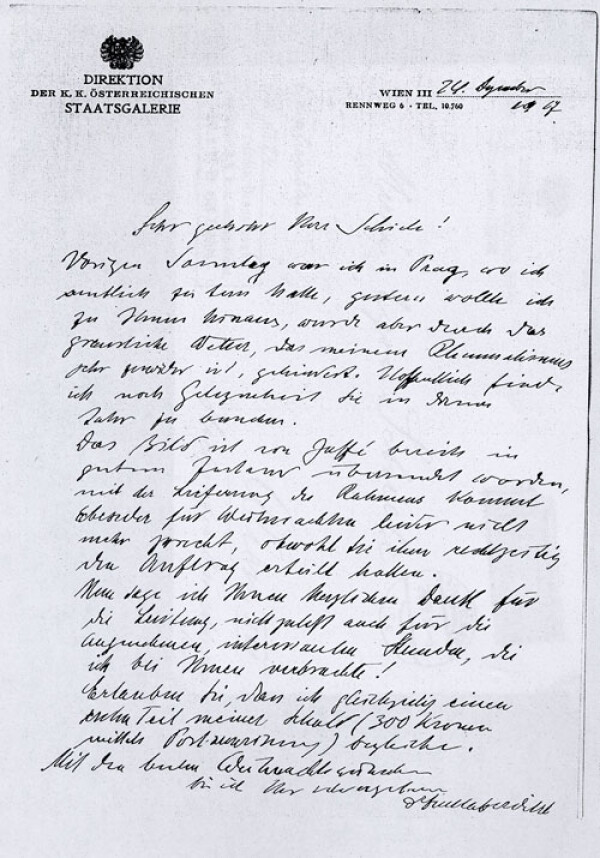 DIREKTION
DER K. K. ÖSTERREICHISCHEN
STAATSGALERIE
WIEN III 24. Dezember
RENNWEG 6 - TEL. 10.760 1917
Sehr geehrter Herr Schiele!
Vorigen Sonntag war ich in Prag, wo ich
amtlich zu tun hatte, gestern wollte ich
zu Ihnen hinaus, wurde aber durch das
grausliche Wetter, das meinem Rheumatismus
sehr zuwider ist, gehindert. Hoffentlich finde
ich noch Gelegenheit Sie in diesem
Jahr zu
Das Bild ist von Jaffé bereits in
gutem Zustand übersendet worden,
mit der Lieferung des Rahmens kommt
für Weihnachten leider nicht
mehr zurecht, obwohl Sie ihm rechtzeitig
den Auftrag erteilt hatten.
Nun sage ich Ihnen herzlichen Dank für
die Leistung, nicht zuletzt auch für die
angenehmen, interessanten Stunden, die
ich bei Ihnen verbrachte!
Erlauben Sie, dass ich gleichzeitig einen
Teil meiner Schuld (300 Kronen
mittels Postanweisung) begleiche.
Mit den besten Weihnachtswünschen
bin ich Ihr sehr ergebener
Dr Haberditzl